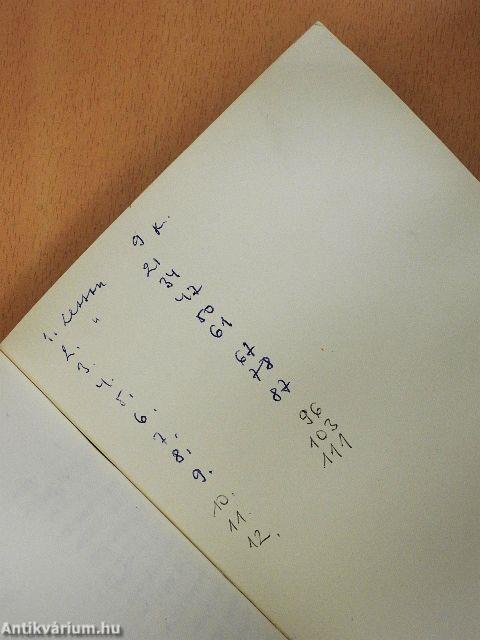 1. Lesson 9 k.
2. " 21
3. 34
4. 47
5. 50
6. 61
7. 67
8. 78
9. 87
10. 96
11. 103
12. 111
Antikvárium.hu